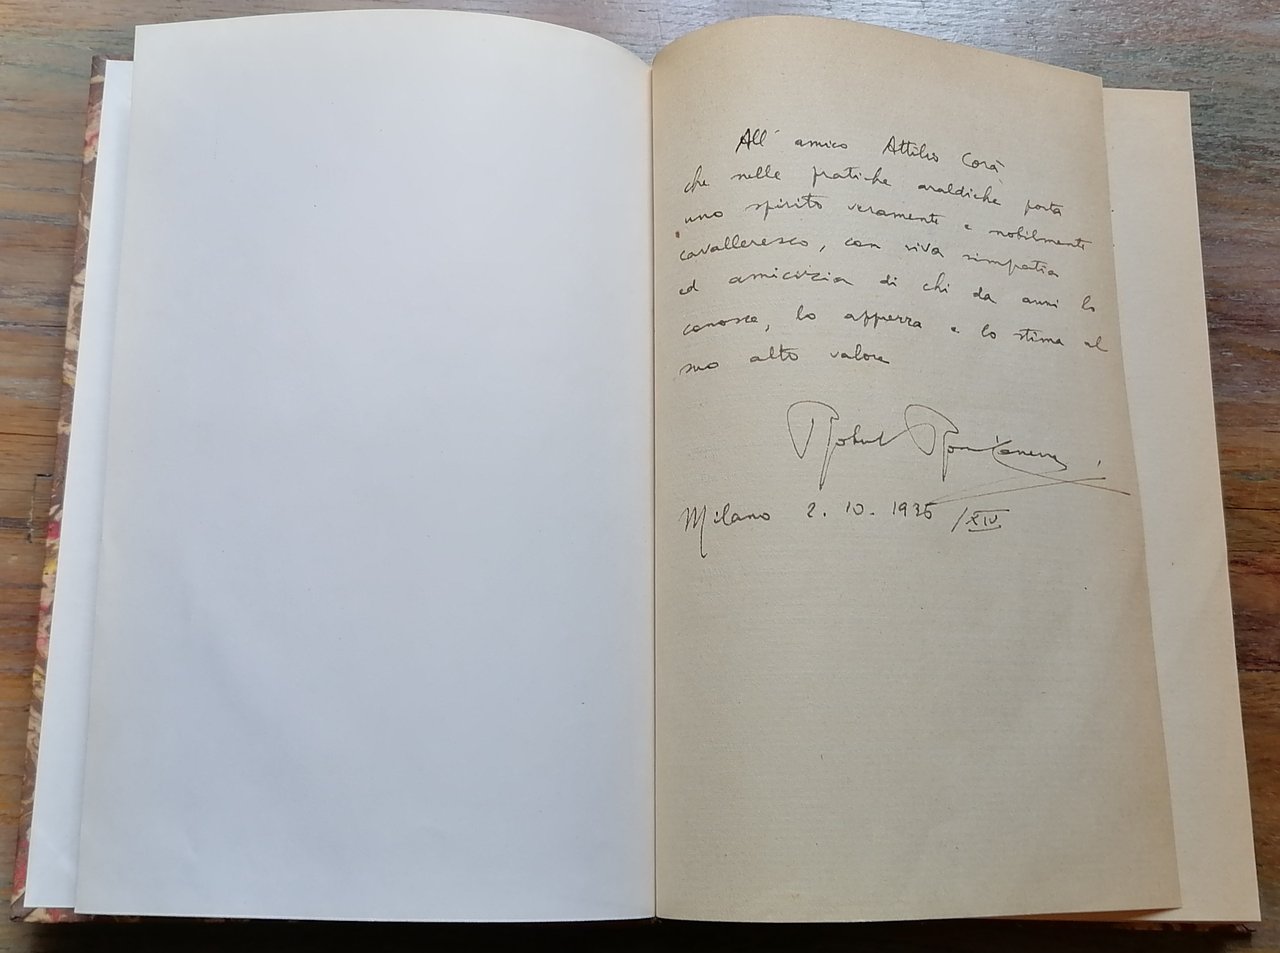 All' amico Attilio Corà
che nelle pratiche araldiche porta
uno spirito veramente e nobilmente
cavalleresco, con viva simpatia
ed amicizia di chi da anni lo
conosce, lo apprezza e lo stima al
suo alto valore
Milano 2. 10. 1936 /XIV